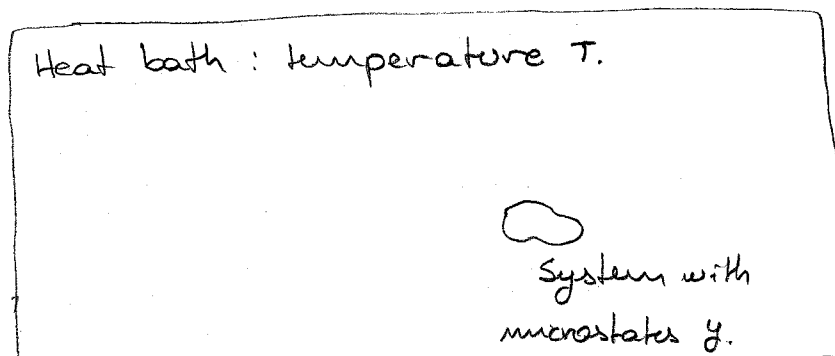 Heat bath : temperature T.
System with
microstates y.